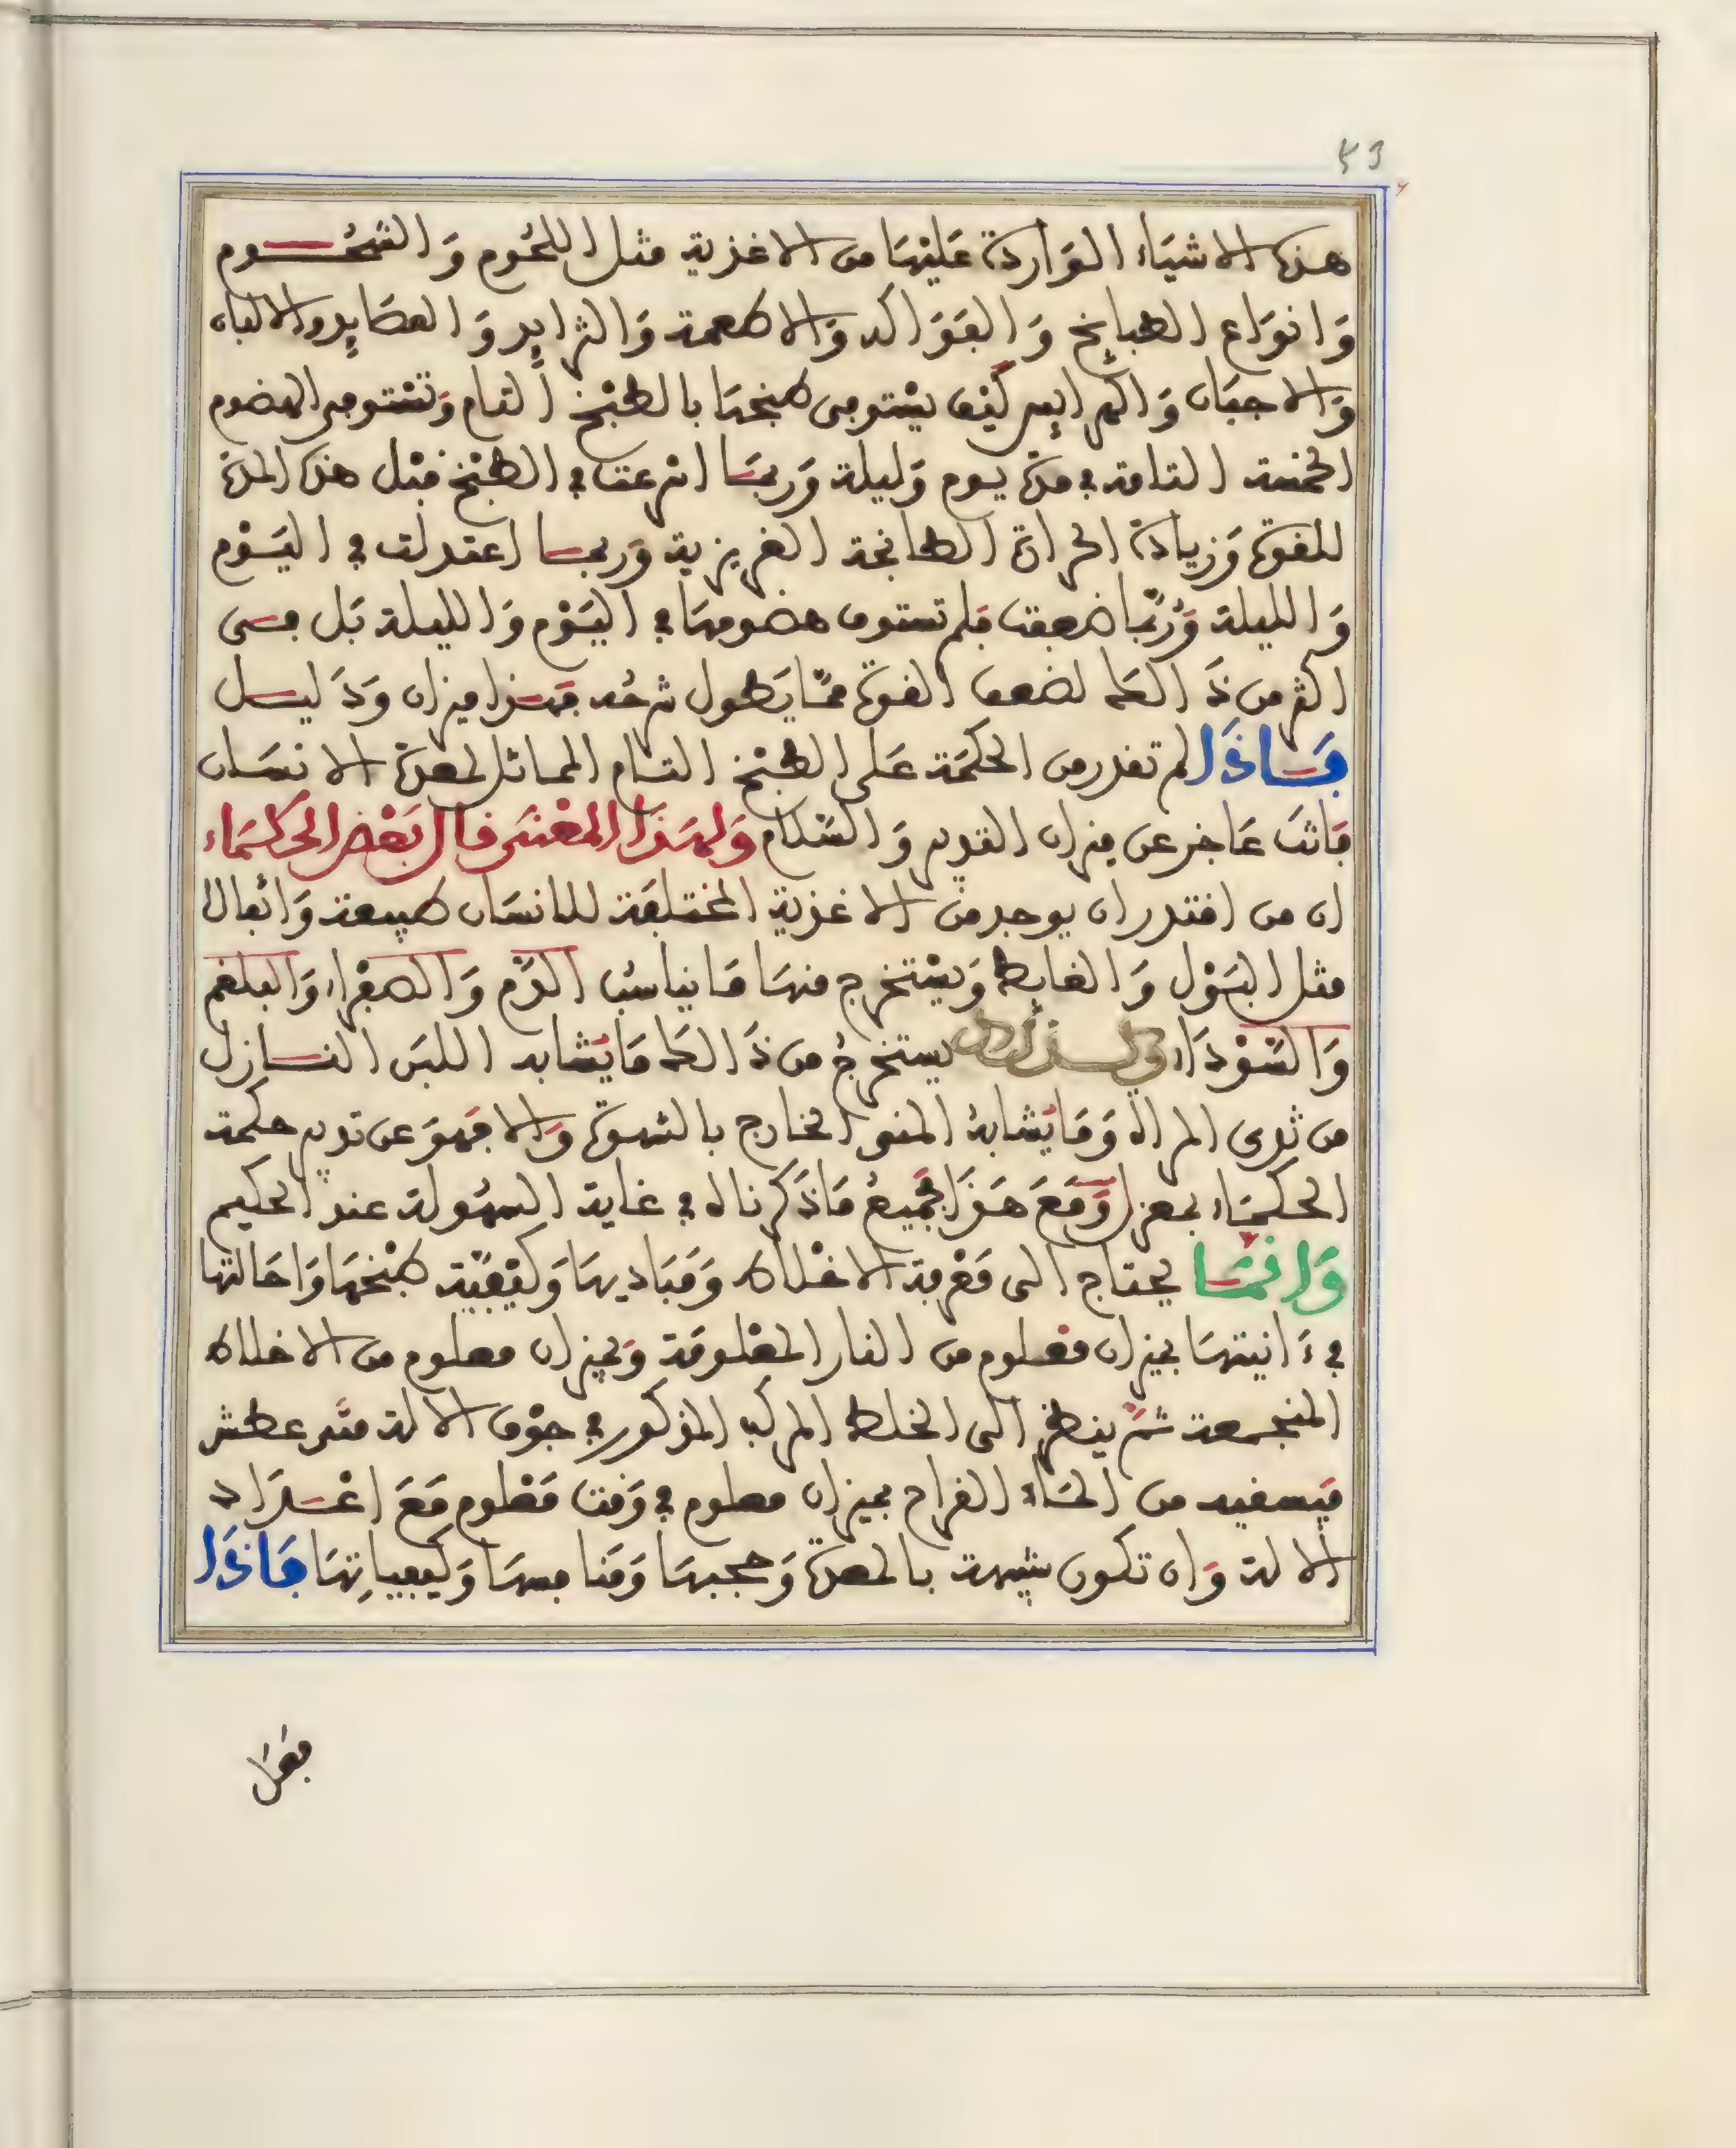 53
هذه الاشياء الواردة عليها من الاغذية مثل اللحوم والشحوم
وانواع الطبايخ والفواكه والاطعمة والثرايد والعصايد والالبان
والاجبان والهرايس كيف يستوفى طبخها بالطبخ التام وتستوفى الهضوم
الخمسة التامة في مدة يوم وليلة وربما اسرعت في الطبخ قبل هذه المدة
للقوة وزيادة الحرارة الطابخة الغريزية وربما اعتدلت في اليوم
والليلة وربما ضعفت فلم تستوف هضومها في اليوم والليلة بل فى
اكثر من ذالك لضعف القوة مما يطول شرحه فهذا ميزان ودليل
فاذا لم تقدر من الحكمة على الطبخ التام المماثل لمعدة الانسان
فانت عاجز عن ميزان التدبير والسلام ولهذا المعنى قال بعض الحكماء
ان من اقتدر ان يوجد من الاغذية المختلفة للانسان طبيعة واثفالا
مثل البول والغايط ويستخرج منها ما يناسب الدم والصفراء والبلغم
والسوداء وكذلك يستخرج من ذالك ما يشابه اللبن النازل
من ثدى المراة وما يشابه المنى الخارج بالشهوة والا فهو عن تدبير حكمة
الحكماء بمعزل ومع هذا فجميع ما ذكرناه في غاية السهولة عند الحكيم
وانما يحتاج الى معرفة الاخلاط ومباديها وكيفية طبخها واحالتها
في ءانيتها بميزان معلوم من النار المعلومة وبميزان معلوم من الاخلاط
المنجمعة ثم ينظر الى الخلط المركب المذكور في جوف الالة متى عطش
فيسقيه من الماء القراح بميزان معلوم في وقت معلوم مع اعتداد
الالة وان تكون شبيهة بالمعدة وحجبها ومنافسها وكيفياتها فاذا